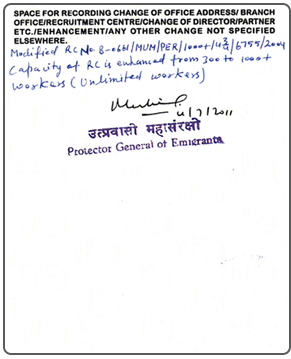 SPACE FOR RECORDING CHANGE OF OFFICE ADDRESS/ BRANCH
OFFICE/RECRUITMENT CENTRE/CHANGE OF DIRECTOR/PARTNER
ETC./ENHANCEMENT/ANY OTHER CHANGE NOT SPECIFIED
ELSEWHERE.
Modified RC No B-0661/MUM/PER/1000+/4 /6755/2004
Capacity of RC is enhanced from 300 to 1000+
workers (Unlimited workers)
4/7/2011
उत्प्रवासी महासंरक्षी
Protector General of Emigrants